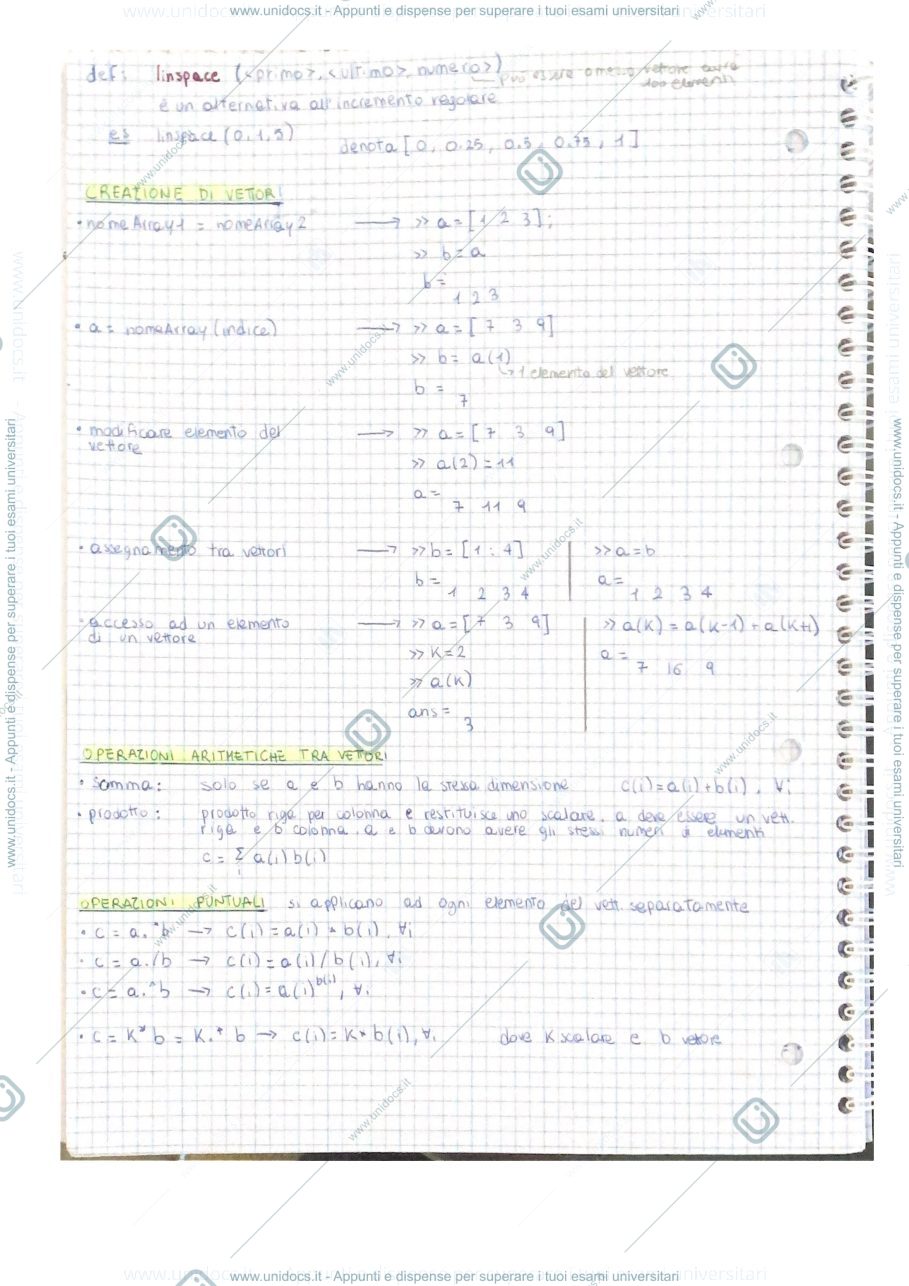 www.unidocs.it - Appunti e dispense per superare i tuoi esami universitari
def: linspace (<primo>, <ultimo>, numero>)
può essere omesso, vettore avrà
100 elementi
è un alternativa all'incremento regolare
es linspace (0,1,5) denota [0, 0.25, 0.5, 0.75, 1]
CREAZIONE DI VETTORI
• nomeArray1 = nomeArray2 → >> a = [1 2 3];
>> b = a
b =
1 2 3
• a = nomeArray (indice) → >> a = [ 7 3 9]
>> b = a(1)
↳ 1 elemento del vettore
b =
7
• modificare elemento del → >> a = [ 7 3 9]
vettore
>> a(2) = 11
a =
7 11 9
• assegnamento tra vettori → >> b = [1 : 4] >> a = b
b = a =
1 2 3 4 1 2 3 4
• accesso ad un elemento → >> a = [7 3 9] >> a(k) = a(k-1) + a(k+1)
di un vettore
>> k = 2 a =
7 16 9
>> a(k)
ans =
3
OPERAZIONI ARITMETICHE TRA VETTORI
• Somma: solo se a e b hanno la stessa dimensione c(i) = a(i) + b(i), ∀i
• prodotto: prodotto riga per colonna e restituisce uno scalare. a deve essere un vett.
riga e b colonna. a e b devono avere gli stessi numeri di elementi
c = Σ a(i) b(i)
i
OPERAZIONI PUNTUALI si applicano ad ogni elemento del vett. separatamente
• c = a.*b → c(i) = a(i) * b(i), ∀i
• c = a./b → c(i) = a(i)/b(i), ∀i
• c = a.^b → c(i) = a(i)^b(i), ∀i
• c = K*b = K.*b → c(i) = K*b(i), ∀i dove K scalare e b vettore
www.unidocs.it - Appunti e dispense per superare i tuoi esami universitari